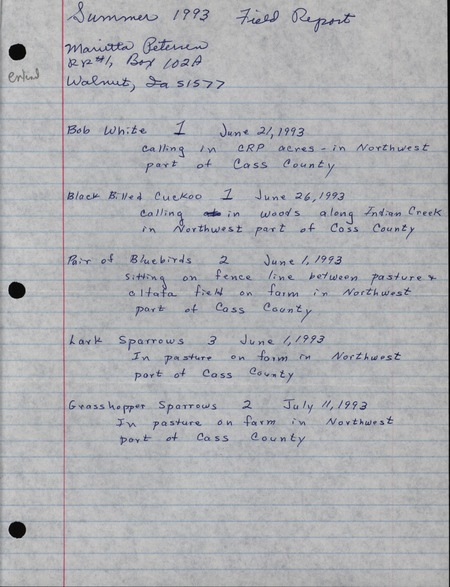 Summer 1993 Field Report
Marietta Petersen
RR#1, Box 102A
Walnut, Ia 51577
Bob White 1 June 21, 1993
calling in CRP acres - in Northwest
part of Cass County
Black Billed Cuckoo 1 June 26, 1993
calling in woods along Indian Creek
in Northwest part of Cass County
Pair of Bluebirds 2 June 1, 1993
sitting on fence line between pasture &
alfafa field on farm in Northwest
part of Cass County
Lark Sparrows 3 June 1, 1993
In pasture on farm in Northwest
part of Cass County
Grasshopper Sparrows 2 July 11, 1993
In pasture on farm in Northwest
part of Cass County